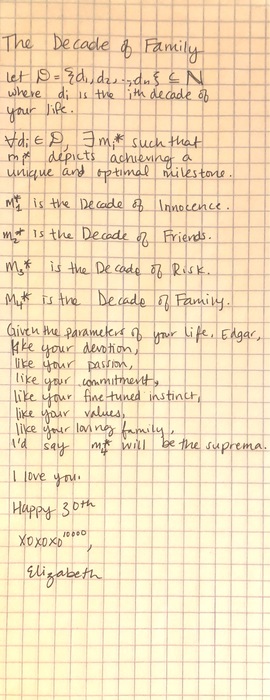 The Decade of Family
Let D = {d₁, d₂, ..., dₙ} ⊆ ℕ
where dᵢ is the ith decade of
your life.
∀dᵢ ∈ D, ∃ mᵢ* such that
mᵢ* depicts achieving a
unique and optimal milestone.
m₁* is the Decade of Innocence.
m₂* is the Decade of Friends.
m₃* is the Decade of Risk.
m₄* is the Decade of Family.
Given the parameters of your life, Edgar,
like your devotion,
like your passion,
like your commitment,
like your fine tuned instinct,
like your values,
like your loving family,
I'd say m₄* will be the suprema.
I love you.
Happy 30th
xoxoxo¹⁰⁰⁰⁰,
Elizabeth